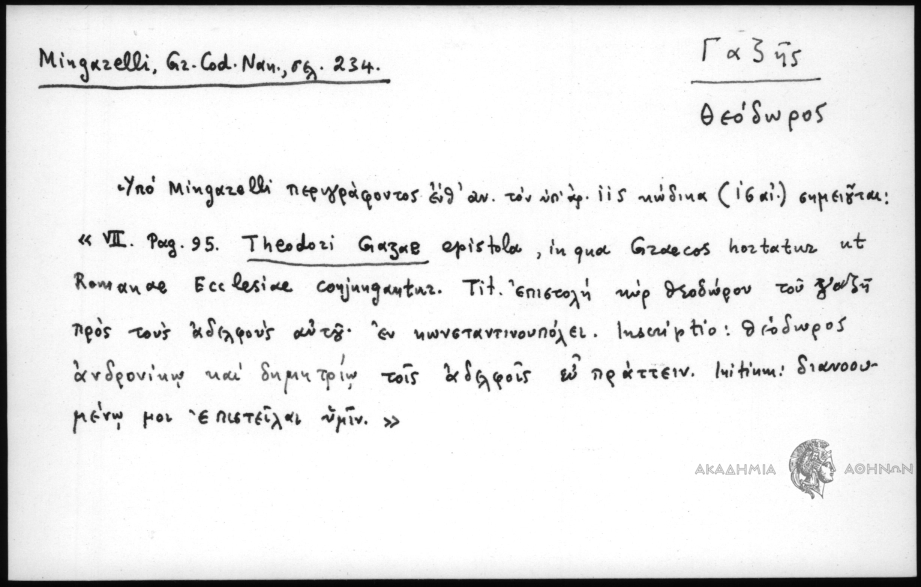 Mingarelli, Gr. Cod. Nan., σελ. 234.
Γαζῆς
Θεόδωρος
Ὑπό Mingarelli περιγράφοντος ἐνθ' ἀν. τόν ὑπ' ἀρ. iis κώδικα ( αἰ.) σημειοῦται:
« VII. Pag. 95. Theodori Gazae epistola, in qua Graecos hortatur ut
Romanae Ecclesiae conjungantur. Tit. Ἐπιστολή κύρ Θεοδώρου τοῦ Γαζῆ
πρός τούς ἀδελφούς αὐτοῦ ἐν κωνσταντινουπόλει. Inscriptio: Θεόδωρος
ἀνδρονίκῳ καί δημητρίῳ τοῖς ἀδελφοῖς εὖ πράττειν. Initium: διανοου-
μένῳ μοι ἐπιστεῖλαι ὑμῖν. »
ΑΚΑΔΗΜΙΑ ΑΘΗΝΩΝ